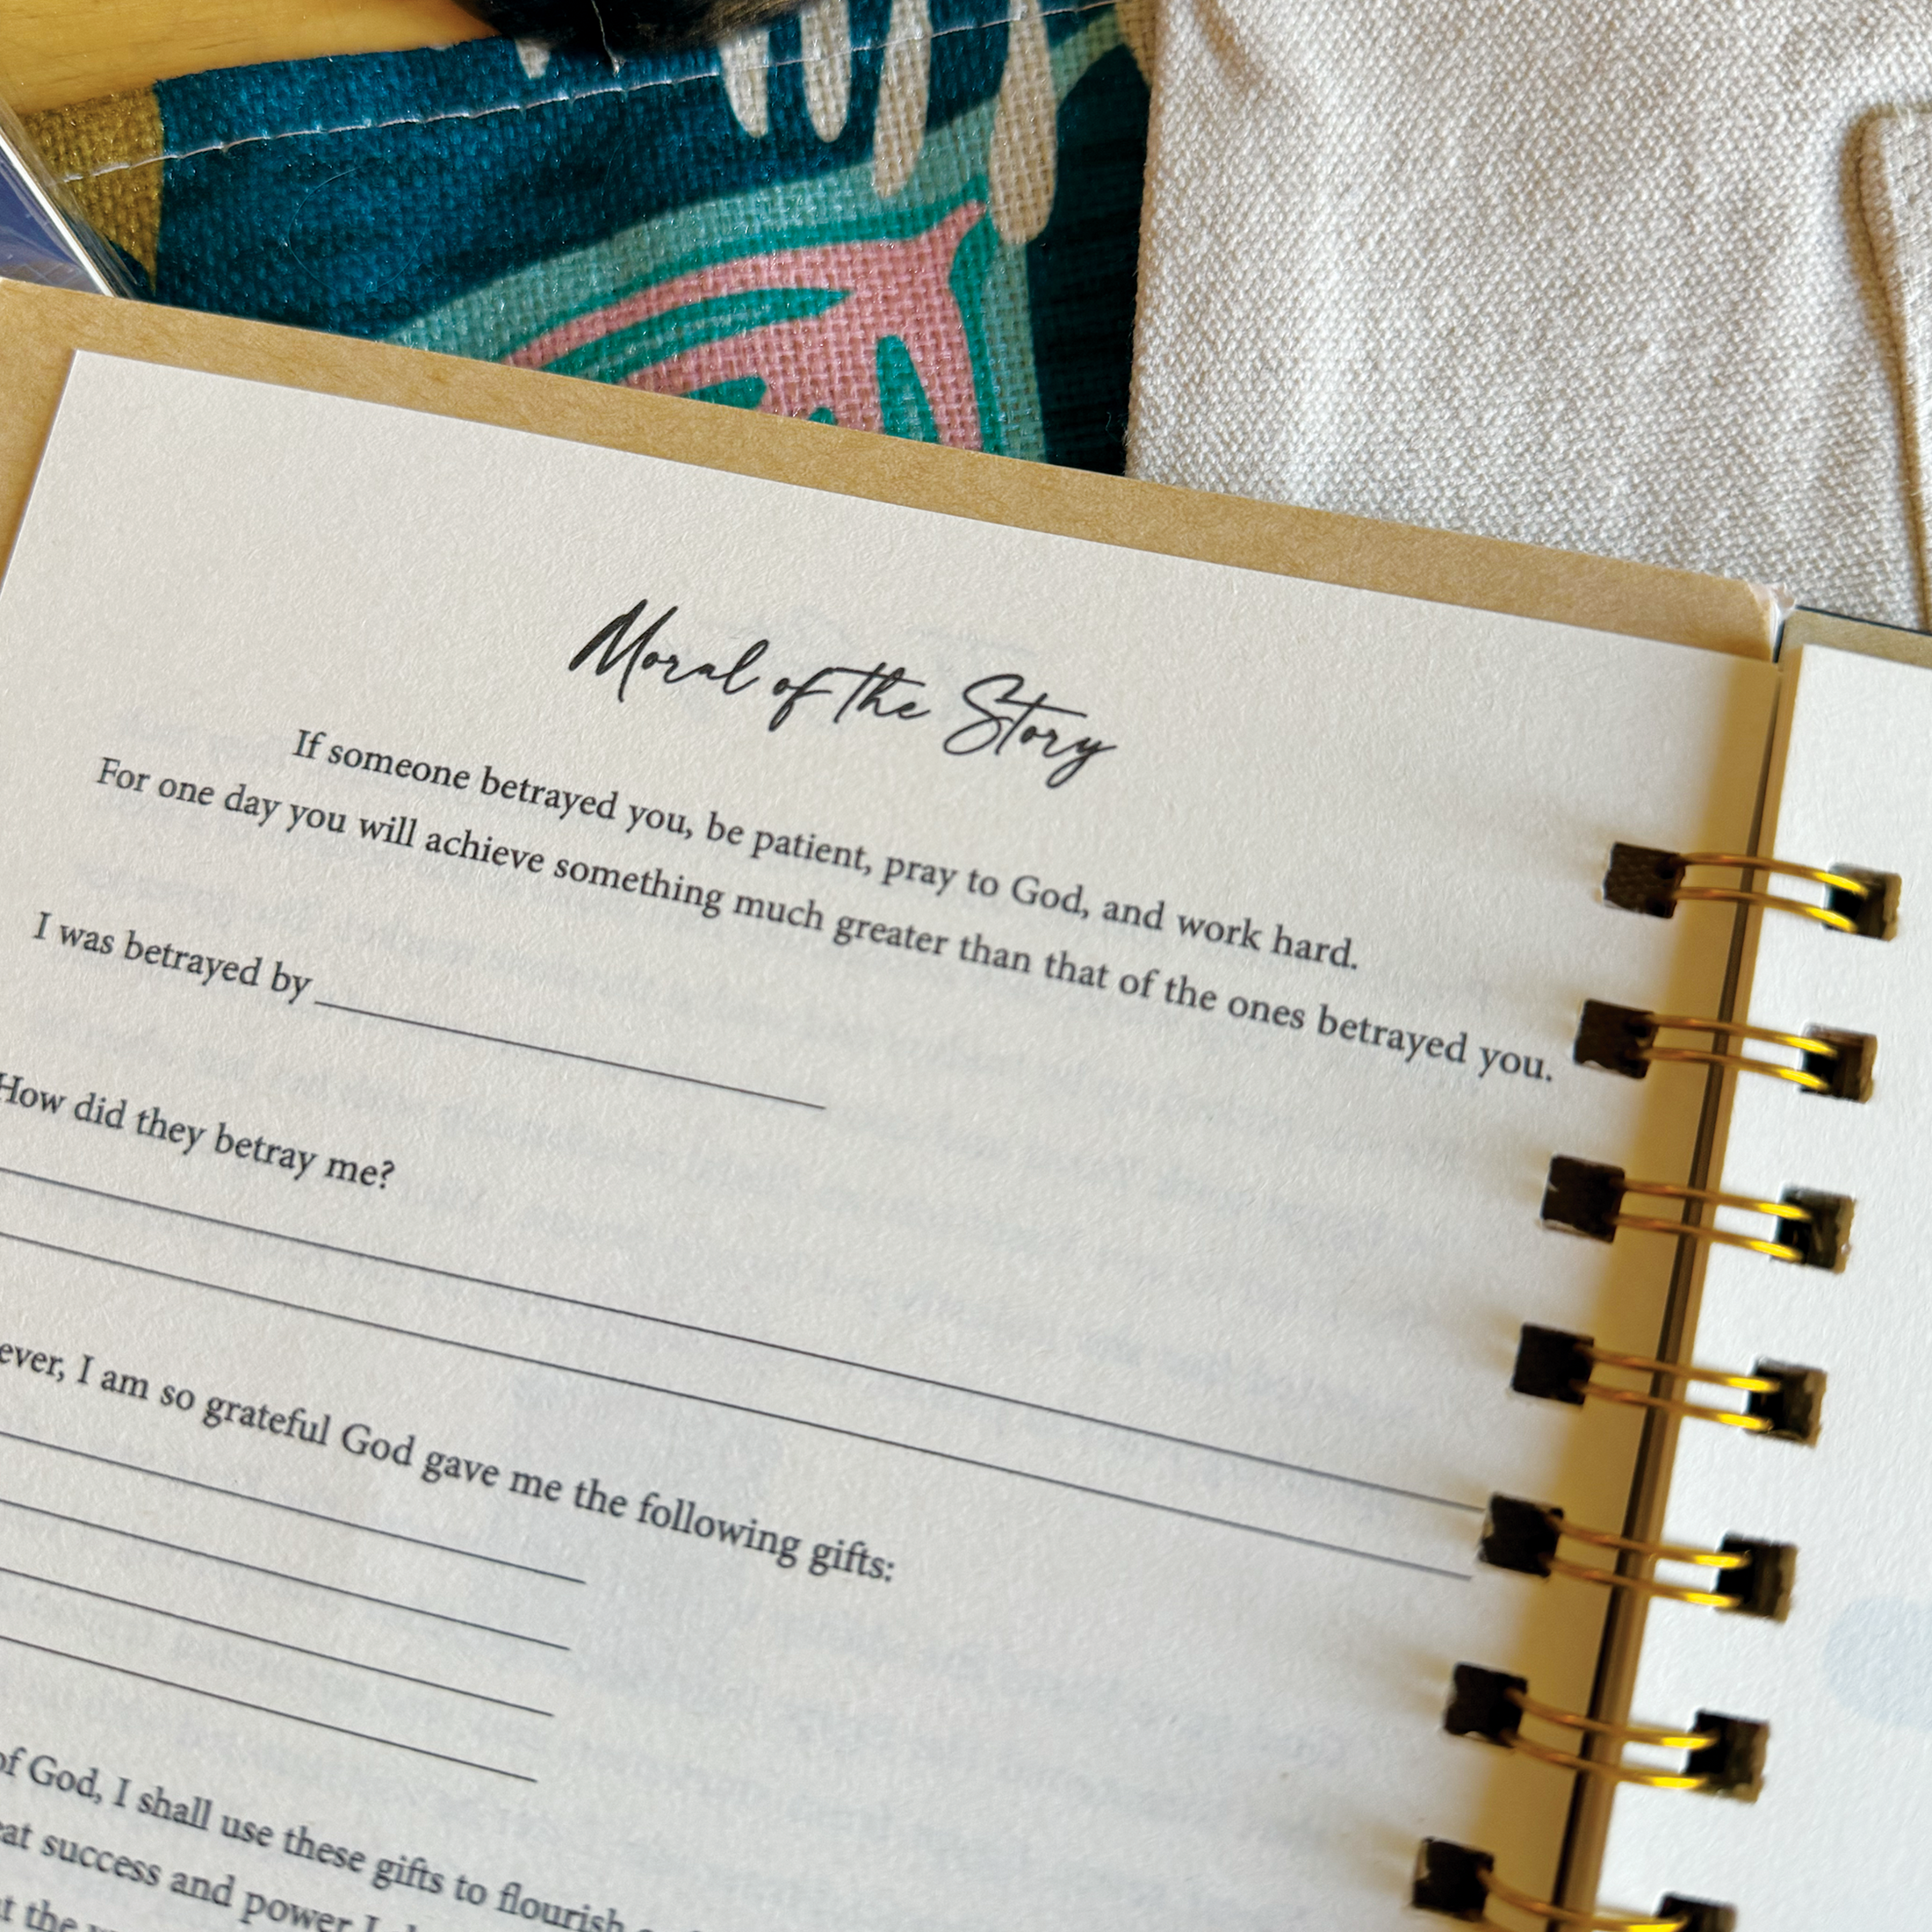 Moral of the Story
If someone betrayed you, be patient, pray to God, and work hard.
For one day you will achieve something much greater than that of the ones betrayed you.
I was betrayed by
How did they betray me?
ever, I am so grateful God gave me the following gifts:
of God, I shall use these gifts to flourish
success and power I
the